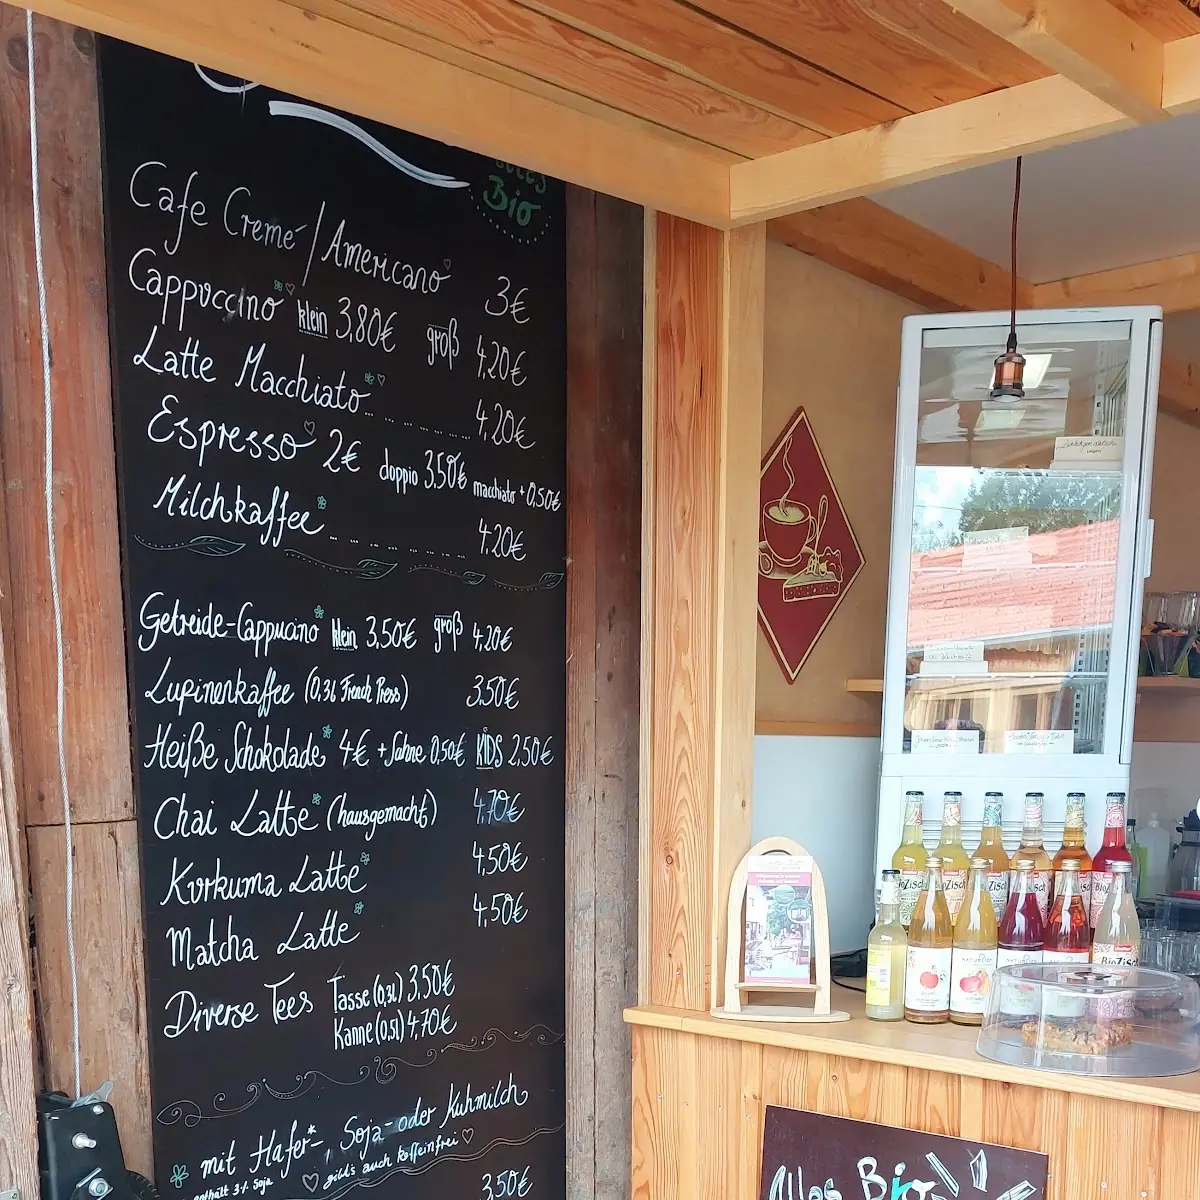 alles
Bio
Cafe Cremé/Americano 3€
Cappuccino klein 3,80€ groß 4,20€
Latte Macchiato 4,20€
Espresso 2€ doppio 3,50€ macchiato + 0,50€
Milchkaffee 4,20€
Getreide-Cappucino klein 3,50€ groß 4,20€
Lupinenkaffee (0,3l French Press) 3,50€
Heiße Schokolade 4€ + Sahne 0,50€ KiDS 2,50€
Chai Latte (hausgemacht) 4,70€
Kurkuma Latte 4,50€
Matcha Latte 4,50€
Diverse Tees Tasse (0,3l) 3,50€
Kanne (0,5l) 4,70€
mit Hafer*-, Soja- oder Kuhmilch
enthält 3% Soja gibt's auch koffeinfrei
3,50€
BioZisch
BioZisch
Alles Bio